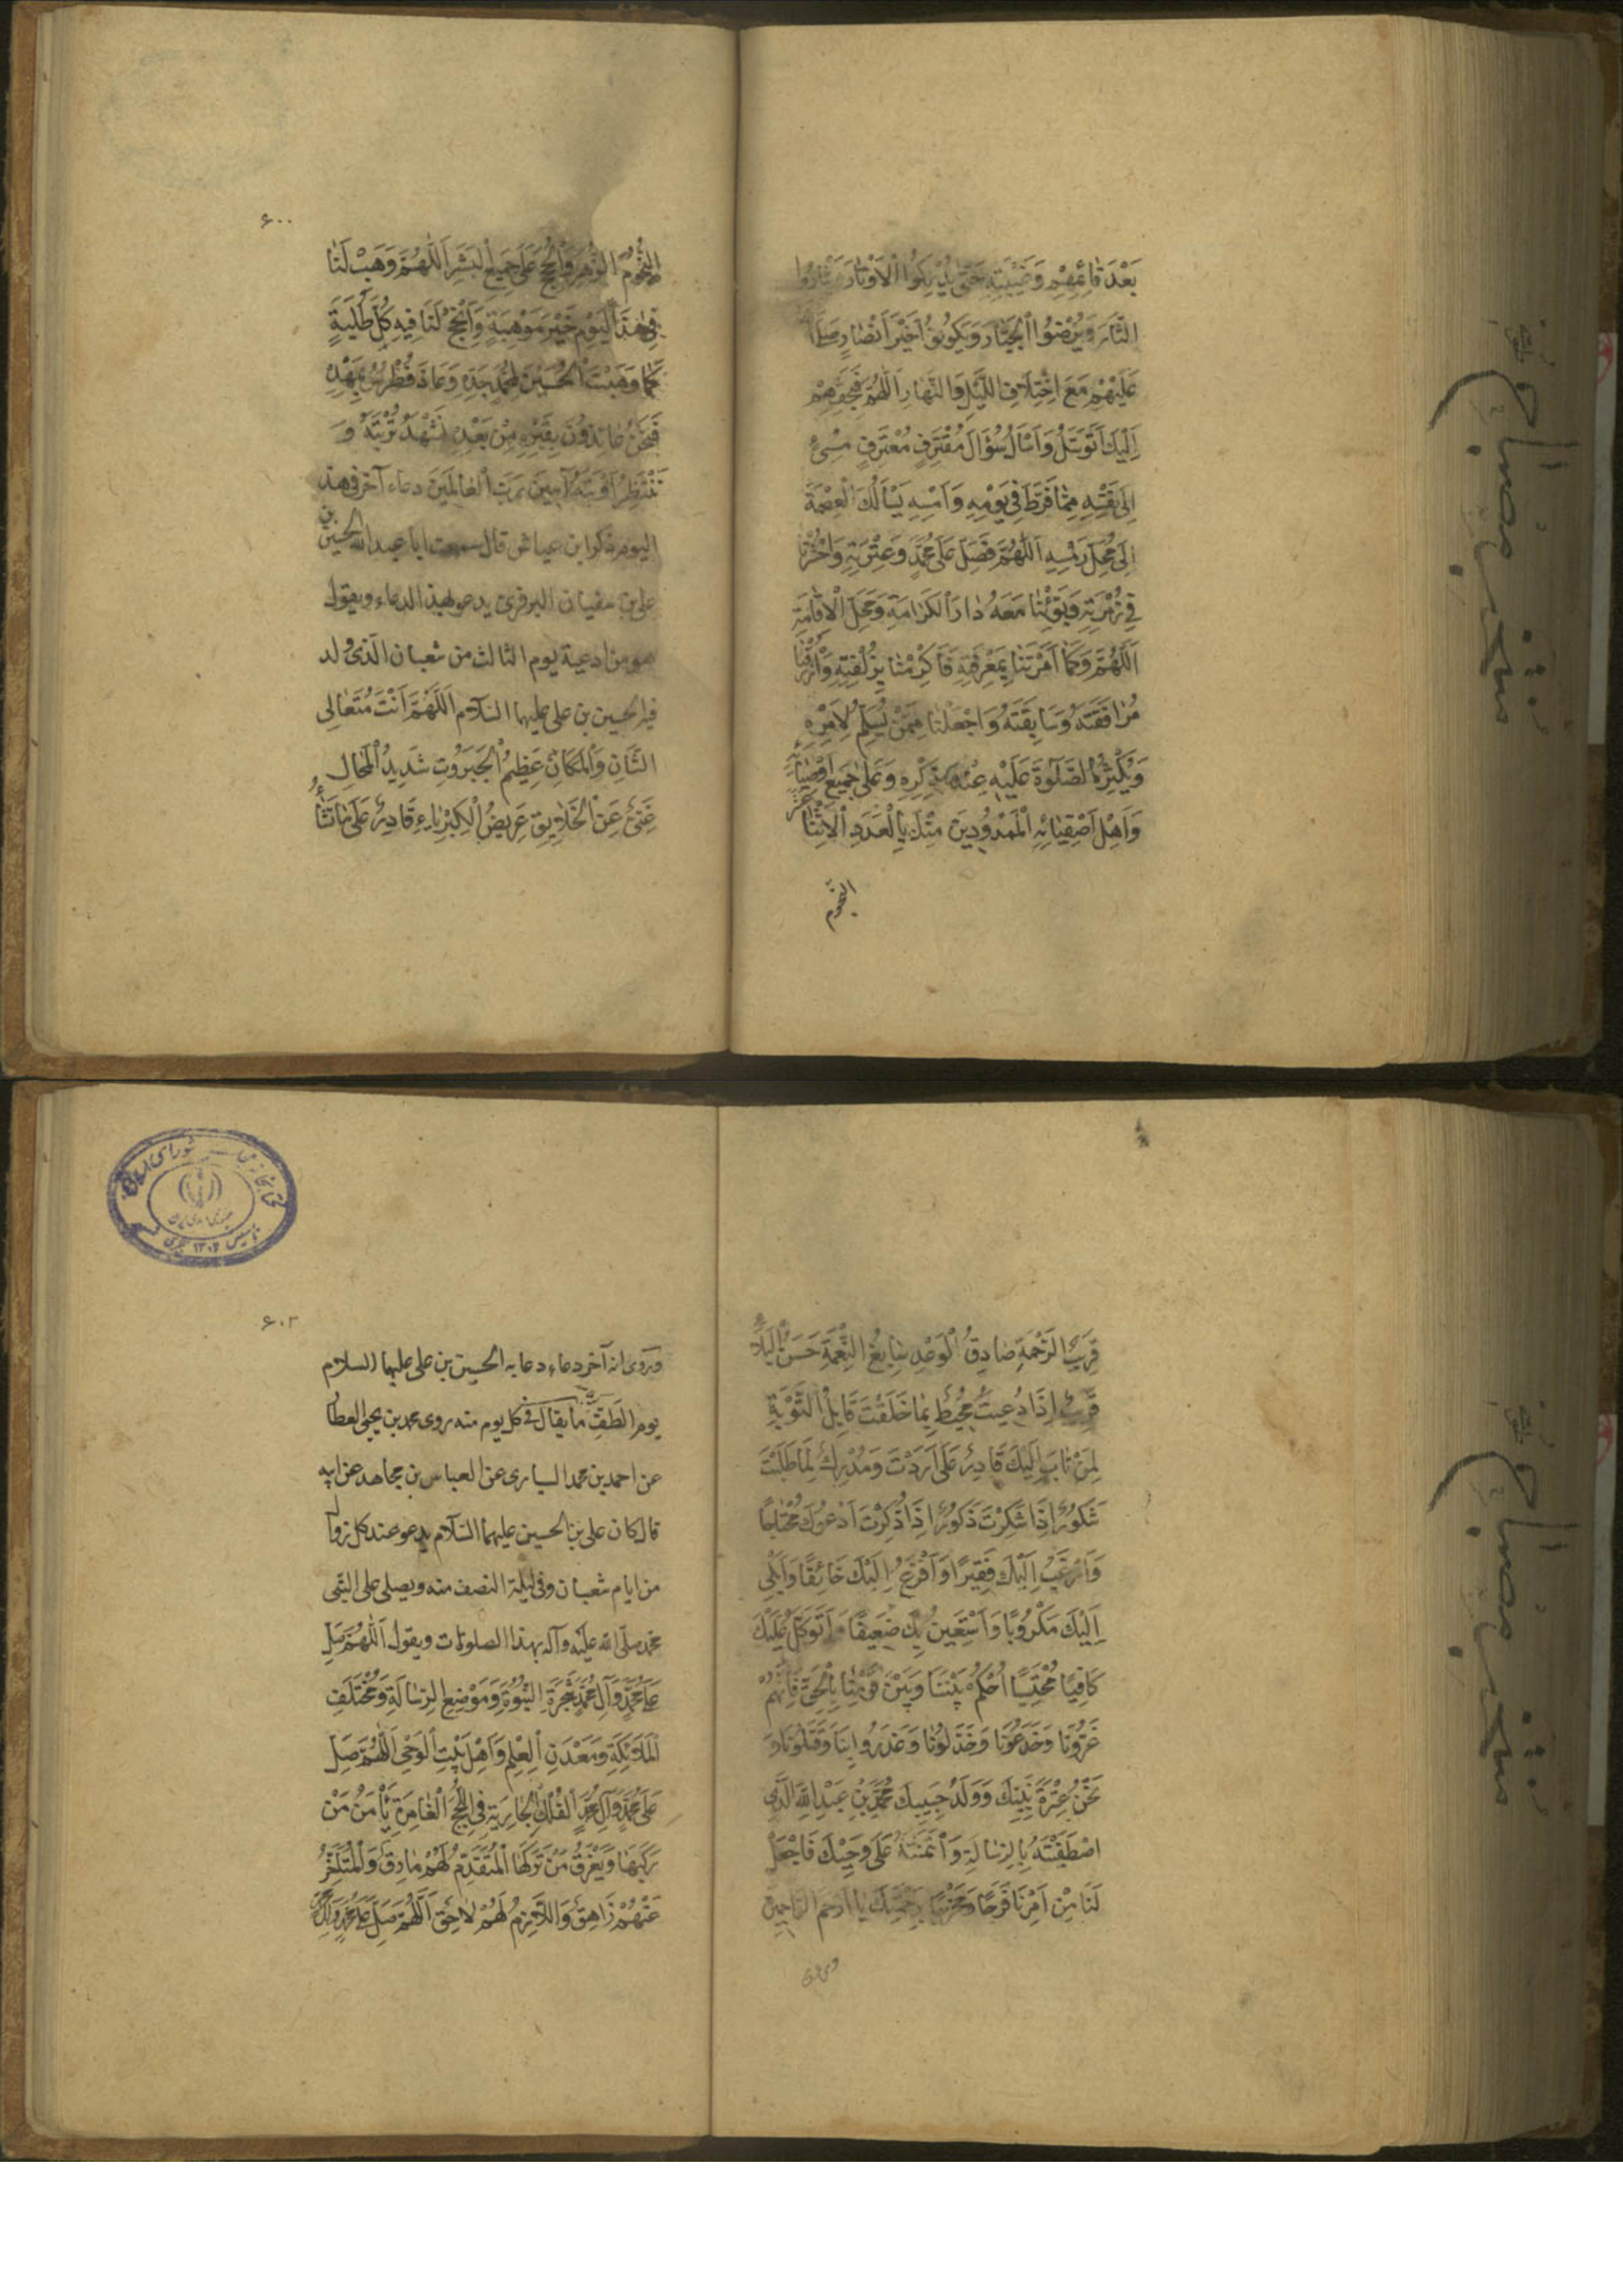 بَعْدَ قَائِمِهِمْ وَغَيْبَتِهِ حَتّى يُدْرِكُوا الْأَوْتَارَ وَيَثْأَرُوا
الثَّارَ وَيُرْضُوا الْجَبَّارَ وَيَكُونُوا خَيْرَ أَنْصَارٍ صَلَّى
عَلَيْهِمْ مَعَ اخْتِلَافِ اللَّيْلِ وَالنَّهَارِ اَللّٰهُمَّ فَبِحَقِّهِمْ
إِلَيْكَ أَتَوَسَّلُ وَأَسْأَلُ سُؤَالَ مُقْتَرِفٍ مُعْتَرِفٍ مُسِيءٍ
إِلَى نَفْسِهِ مِمَّا فَرَّطَ فِي يَوْمِهِ وَأَمْسِهِ يَسْأَلُكَ الْعِصْمَةَ
إِلَى مَحَلِّ رَمْسِهِ اَللّٰهُمَّ فَصَلِّ عَلَى مُحَمَّدٍ وَعِتْرَتِهِ وَاحْشُرْنَا
فِي زُمْرَتِهِ وَبَوِّئْنَا مَعَهُ دَارَ الْكَرَامَةِ وَمَحَلَّ الْإِقَامَةِ
اَللّٰهُمَّ وَكَمَا أَمَرْتَنَا بِمَعْرِفَتِهِ فَأَكْرِمْنَا بِزُلْفَتِهِ وَارْزُقْنَا
مُرَافَقَتَهُ وَسَابِقَتَهُ وَاجْعَلْنَا مِمَّنْ يُسَلِّمُ لِأَمْرِهِ
وَيُكْثِرُ الصَّلٰوةَ عَلَيْهِ عِنْدَ ذِكْرِهِ وَعَلَى جَمِيعِ أَوْصِيَائِهِ
وَأَهْلِ أَصْفِيَائِهِ الْمَمْدُودِينَ مِنْكَ بِالْعَدَدِ الْاِثْنَا عَشَرَ
النُّجُومِ
۶۰۰
النُّجُومِ الزُّهَرِ وَالْحُجَجِ عَلَى جَمِيعِ الْبَشَرِ اَللّٰهُمَّ وَهَبْ لَنَا
فِي هٰذَا الْيَوْمِ خَيْرَ مَوْهِبَةٍ وَأَنْجِحْ لَنَا فِيهِ كُلَّ طَلِبَةٍ
كَمَا وَهَبْتَ الْحُسَيْنَ لِمُحَمَّدٍ جَدِّهِ وَعَاذَ فُطْرُسُ بِمَهْدِهِ
فَنَحْنُ عَائِذُونَ بِقَبْرِهِ مِنْ بَعْدِهِ نَشْهَدُ تُرْبَتَهُ وَ
نَنْتَظِرُ أَوْبَتَهُ آمِينَ رَبَّ الْعَالَمِينَ دعاء آخر فى هذ
اليوم ذكر ابن عياش قال سمعت ابا عبد الله الحسين بن
على بن سفيان البزوفرى يدعو بهذ الدعاء ويقول
هو من ادعية يوم الثالث من شعبان الذى ولد
فيه الحسين بن على عليهما السلام اَللّٰهُمَّ أَنْتَ مُتَعَالِى
الشَّانِ وَالْمَكَانِ عَظِيمُ الْجَبَرُوتِ شَدِيدُ الْمِحَالِ
غَنِيٌّ عَنِ الْخَلَايِقِ عَرِيضُ الْكِبْرِيَاءِ قَادِرٌ عَلَى مَا تَشَاءُ
قَرِيبُ الرَّحْمَةِ صَادِقُ الْوَعْدِ سَابِغُ النِّعْمَةِ حَسَنُ الْبَلَاءِ
قَرِيبٌ إِذَا دُعِيتَ مُحِيطٌ بِمَا خَلَقْتَ قَابِلُ التَّوْبَةِ
لِمَنْ تَابَ إِلَيْكَ قَادِرٌ عَلَى أَرَدْتَ وَمُدْرِكٌ لِمَا طَلَبْتَ
شَكُورٌ إِذَا شُكِرْتَ ذَكُورٌ إِذَا ذُكِرْتَ أَدْعُوكَ مُحْتَاجًا
وَأَرْغَبُ إِلَيْكَ فَقِيرًا وَأَفْزَعُ إِلَيْكَ خَائِفًا وَأَبْكِى
إِلَيْكَ مَكْرُوبًا وَأَسْتَعِينُ بِكَ ضَعِيفًا وَأَتَوَكَّلُ عَلَيْكَ
كَافِيًا مُحْتَسِبًا أُحْكُمْ بَيْنَنَا وَبَيْنَ قَوْمِنَا بِالْحَقِّ فَإِنَّهُمْ
غَرُّونَا وَخَدَعُونَا وَخَذَلُونَا وَغَدَرُوا بِنَا وَقَتَلُونَا وَ
نَحْنُ عِتْرَةُ نَبِيِّكَ وَوَلَدُ حَبِيبِكَ مُحَمَّدِ بْنِ عَبْدِ اللّٰهِ الَّذِى
اصْطَفَيْتَهُ بِالرِّسَالَةِ وَائْتَمَنْتَهُ عَلَى وَحْيِكَ فَاجْعَلْ
لَنَا مِنْ أَمْرِنَا فَرَجًا وَمَخْرَجًا بِرَحْمَتِكَ يَا أَرْحَمَ الرَّاحِمِينَ
وروى
۶۰۲
وروى انه آخر دعاء دعا به الحسين بن على عليهما السلام
يوم الطَفّ ما يقال فى كل يوم منه روى محمد بن يحيى العطار
عن احمد بن محمد السيارى عن العباس بن مجاهد عن ابيه
قال كان على بن الحسين عليهما السلام يدعو عند كل زوال
من ايام شعبان وفى ليلة النصف منه ويصلى على النبى
محمد صلى الله عليه وآله بهذا الصلوات ويقول اَللّٰهُمَّ صَلِّ
عَلَى مُحَمَّدٍ وَآلِ مُحَمَّدٍ شَجَرَةِ النُّبُوَّةِ وَمَوْضِعِ الرِّسَالَةِ وَمُخْتَلَفِ
الْمَلَائِكَةِ وَمَعْدَنِ الْعِلْمِ وَأَهْلِ بَيْتِ الْوَحْىِ اَللّٰهُمَّ صَلِّ
عَلَى مُحَمَّدٍ وَآلِ مُحَمَّدٍ الْفُلْكِ الْجَارِيَةِ فِى اللُّجَجِ الْغَامِرَةِ يَأْمَنُ مَنْ
رَكِبَهَا وَيَغْرَقُ مَنْ تَرَكَهَا الْمُتَقَدِّمُ لَهُمْ مَارِقٌ وَالْمُتَأَخِّرُ
عَنْهُمْ زَاهِقٌ وَاللَّازِمُ لَهُمْ لَاحِقٌ اَللّٰهُمَّ صَلِّ عَلَى مُحَمَّدٍ وَآلِ